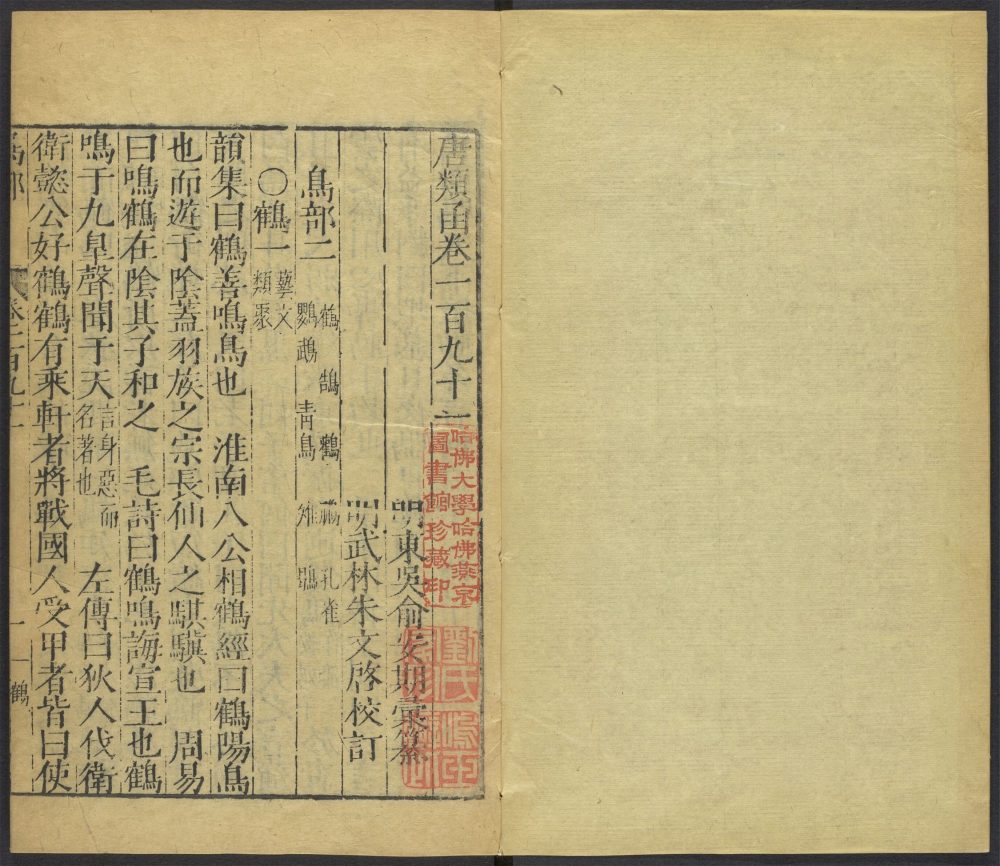 唐類函卷一百九十二
明東吳俞安期彙纂
明武林朱文啓校訂
鳥部二 鶴 鵠 鸛 孔雀
鸚鵡 青鳥 雉 鶡
○鶴一 藝文類聚
韻集曰鶴善鳴鳥也 淮南八公相鶴經曰鶴陽鳥
也而遊于陰蓋羽族之宗長仙人之騏驥也 周易
曰鳴鶴在陰其子和之 毛詩曰鶴鳴誨宣王也鶴
鳴于九臯聲聞于天 言身惡而名著也 左傳曰狄人伐衛
衛懿公好鶴鶴有乘軒者將戰國人受甲者皆曰使
鳥部
一 鶴
哈佛大學哈佛燕京
圖書館珍藏印